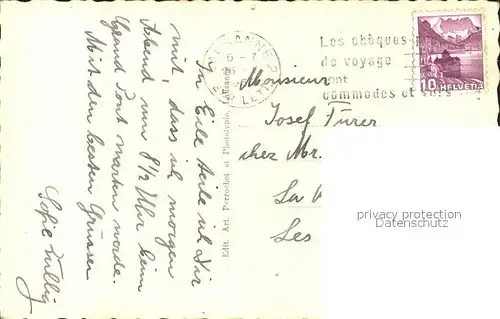 In Eile teile ich Dir
mit, dass ich morgen
Abend um 8½ Uhr beim
Grand Pont warten werde.
Mit den besten Grüssen
Sofie
Edit. Art. Perrochet et Phototypie, Lausanne
LAUSANNE 2
6 - 7
EXP. LETTR.
Les chèques
de voyage
sont
commodes et sûrs
10 HELVETIA
Monsieur
Josef Furer
chez Mr.
La
Les
privacy protection
Datenschutz